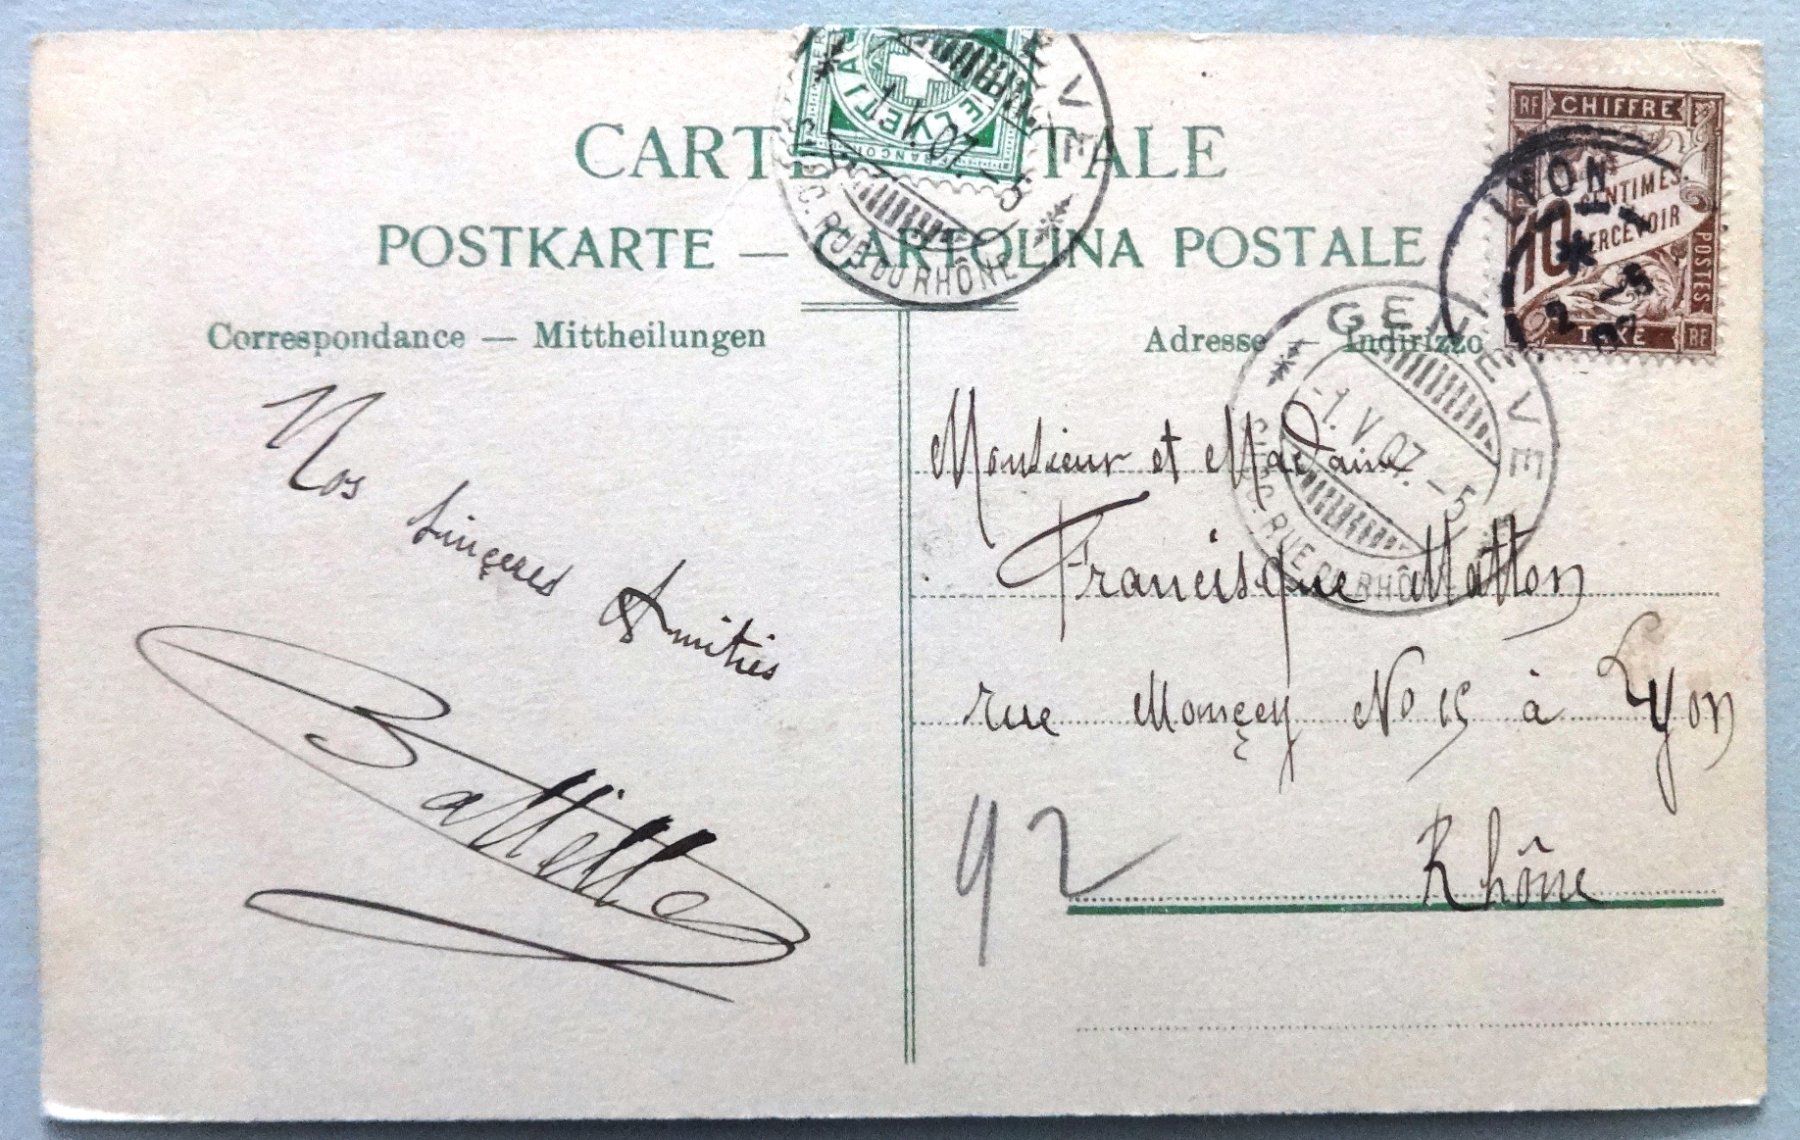 CARTE POSTALE
POSTKARTE — CARTOLINA POSTALE
Correspondance — Mittheilungen
Adresse — Indirizzo
HELVETIA
FRANCO
GENÈVE
1.V.07.-5
SUCC. RUE DU RHÔNE
RF CHIFFRE
10 CENTIMES
A PERCEVOIR
POSTES
TAXE RF
LYON
2 -5
07
GENÈVE
-1.V.07.-5
SUCC. RUE DU RHÔNE
Nos sinçeres Amitiés
Monsieur et Madame
Francisque Matton
rue Monçey No 15 à Lyon
Rhône
92